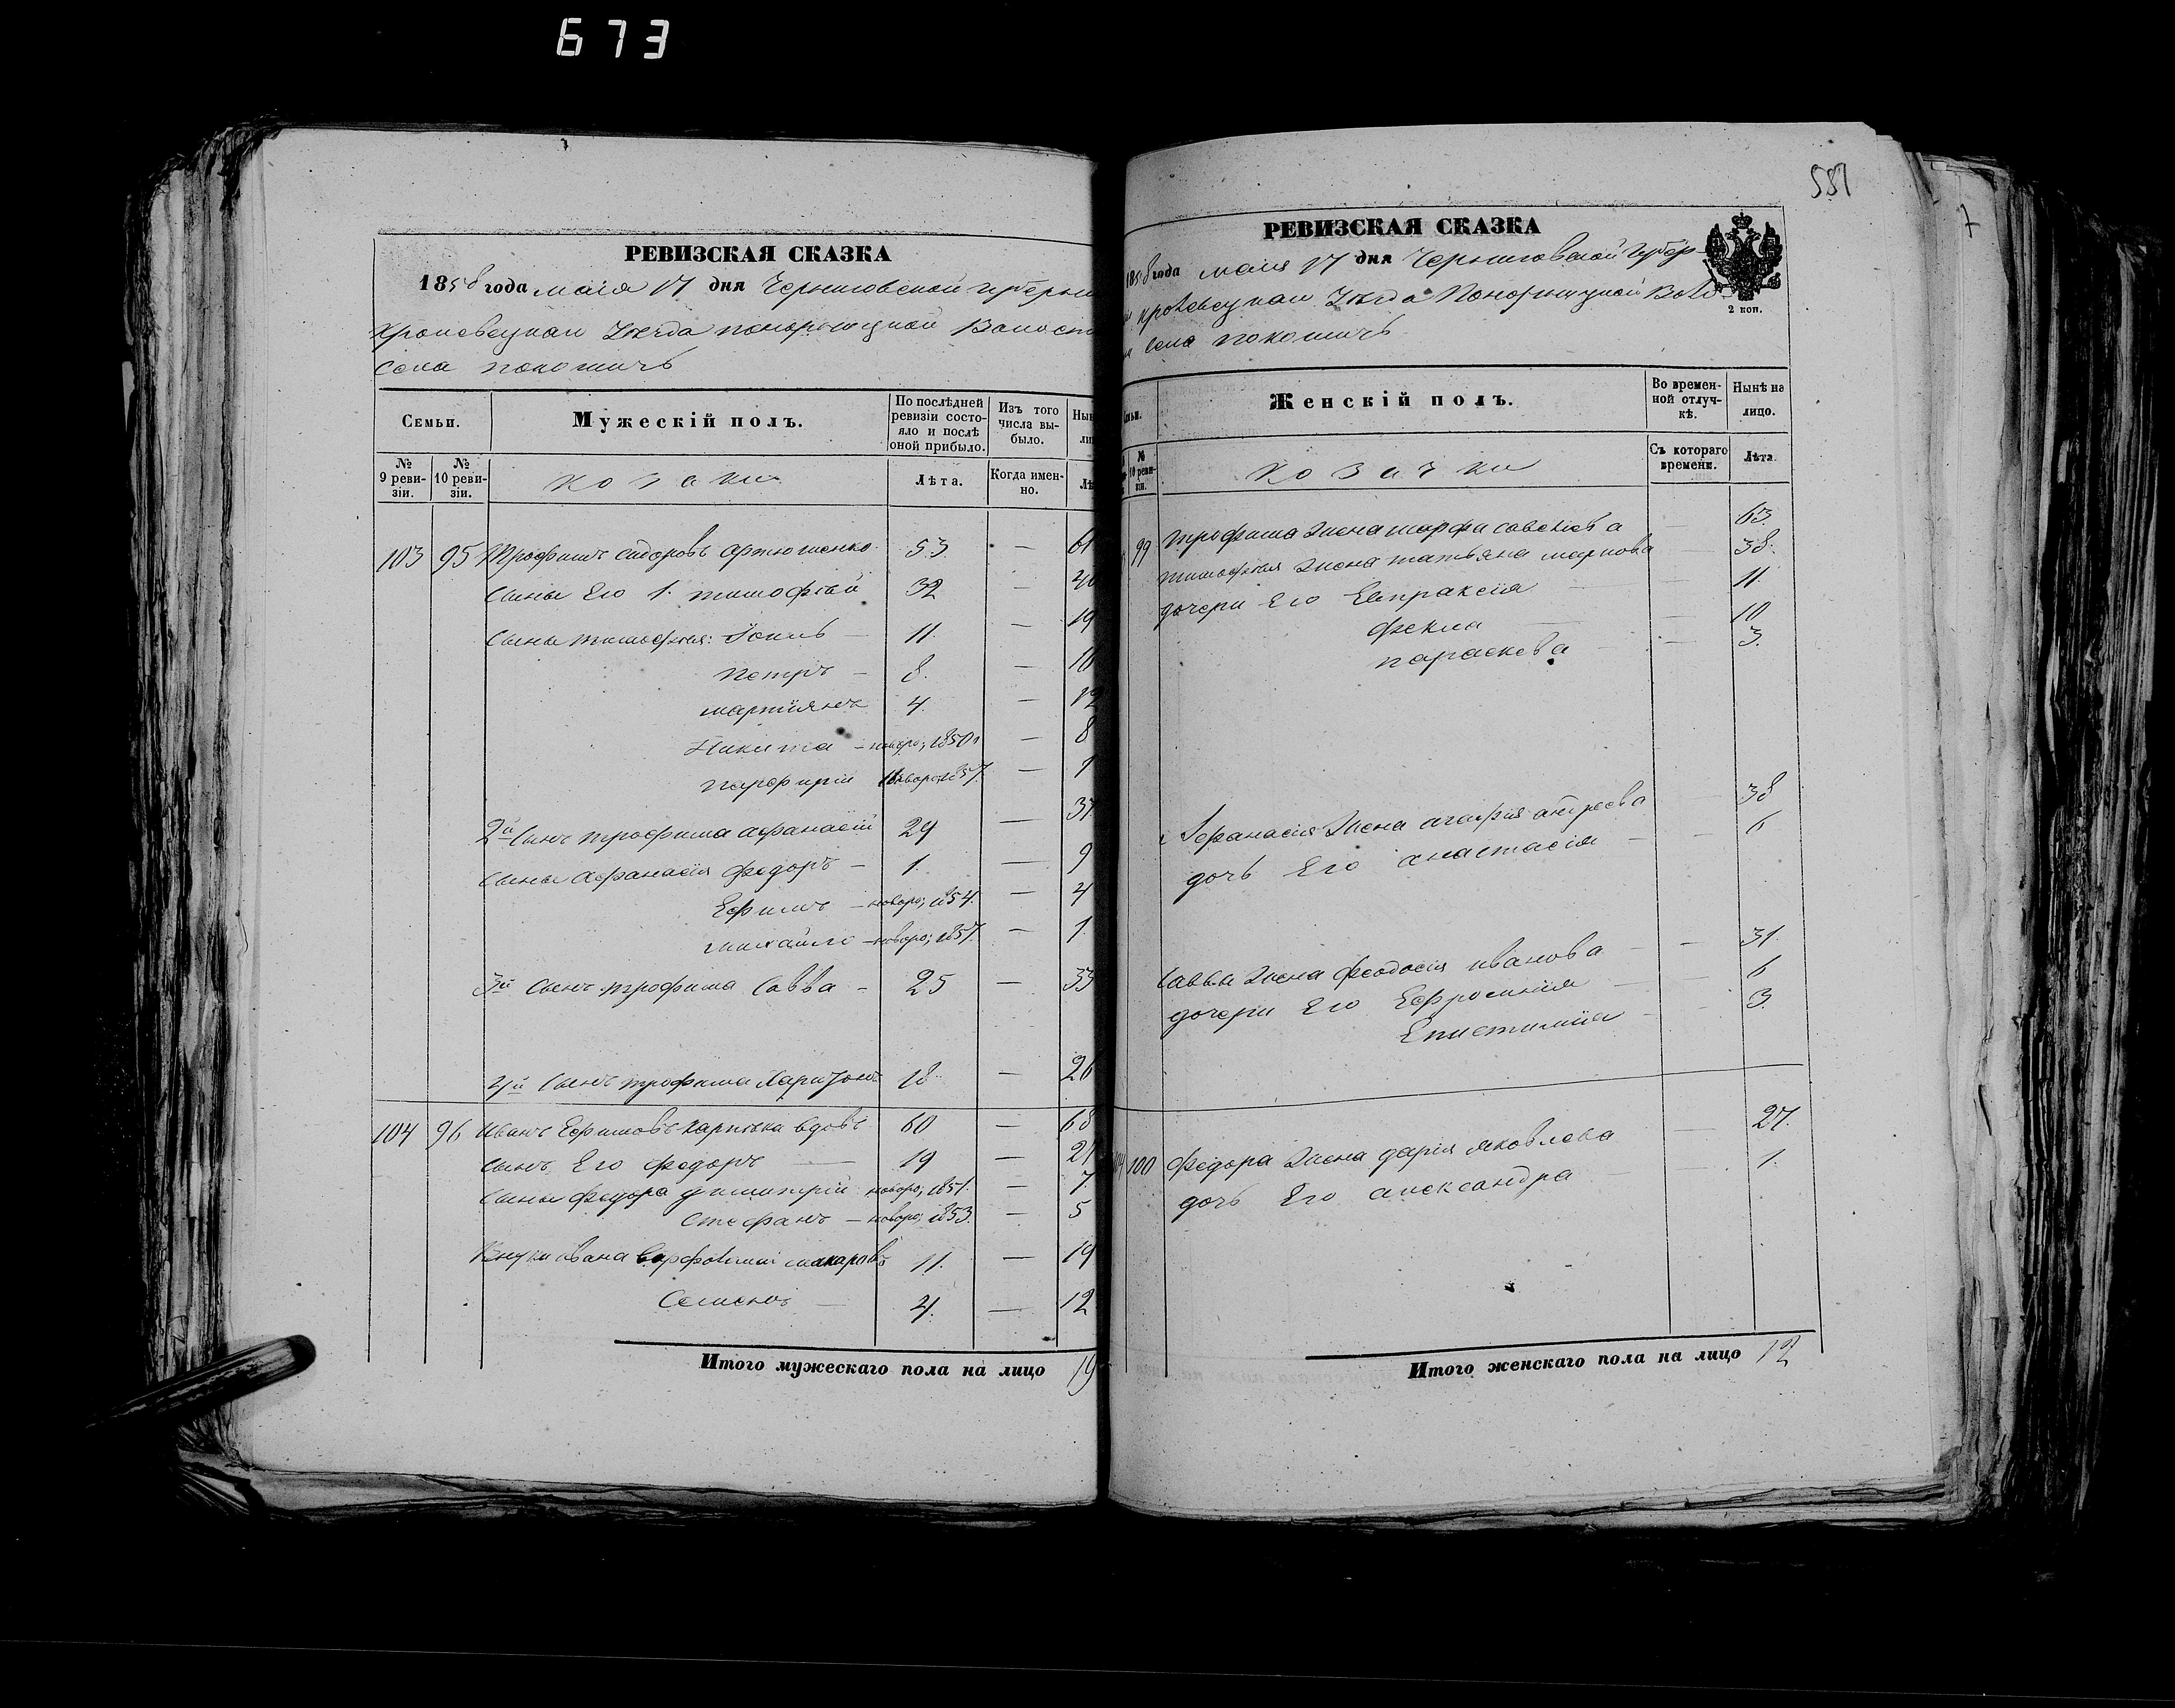 673
РЕВИЗСКАЯ СКАЗКА
1858 года маія 17 дня Черниговской губерн
Кролевецкаго Уезда понорницкой Волост
села покошичъ
Семьи.
Мужескій полъ.
По послѣдней ревизіи состояло и послѣ оной прибыло.
Изъ того числа выбыло.
Нын
ли
№ 9 ревизіи.
№ 10 ревизіи.
козаки
Лѣта.
Когда именно.
Лѣ
103 95 Трофимъ сидоровъ артюшенко 53 — 61
сыны Его 1. тимофѣй 32 — 40
сыны тимофѣя: Іовиль — 11. — 19
петръ — 8. — 16
мартіянъ 4. — 12
Никита — новоро; 1850 — 8
парфирій новоро 1857. — 1
2й сынъ трофима афанасій 29 — 37
сыны афанасія федоръ — 1. — 9
Ефимъ — новоро; 1854. — 4
михайло — новоро; 1857. — 1.
3й сынъ трофима Савва — 25 — 33
4й сынъ трофима Харитонъ 18 — 26
104 96 Иванъ Ефимовъ карпѣка вдовъ 60 — 68
сынъ Его федоръ — 19 — 27
сыны федора димитрій новоро; 1851. — 7
Стефанъ — новоро; 1853. — 5
Внуки ивана варфоломей макаровъ 11. — 19
Семенъ — 4. — 12
Итого мужескаго пола на лицо 19
587
7
РЕВИЗСКАЯ СКАЗКА
1858 года маія 17 дня Черниговской Губер
кролевецкаго Уезда Понорницкой Воло
села покошичъ
2 коп.
Семьи.
Женскій полъ.
Во временной отлучкѣ.
Нынѣ на лицо.
№ 10 ревизіи.
козачки
Съ котораго времени.
Лѣта.
99 трофима жена марфа савелиева — 63.
тимофѣя жена татьяна маркова — 38.
дочери Его Евпраксія — 11.
фекла — 10
параскева — 3.
Афанасія жена агафія андреева — 38
дочь Его анастасія — 6
саввы жена феодосія иванова — 31.
дочери Его Ефросинія — 6
Епистимія — 3.
104 100 федора жена дарія яковлева — 27.
дочь Его александра — 1.
Итого женскаго пола на лицо 12